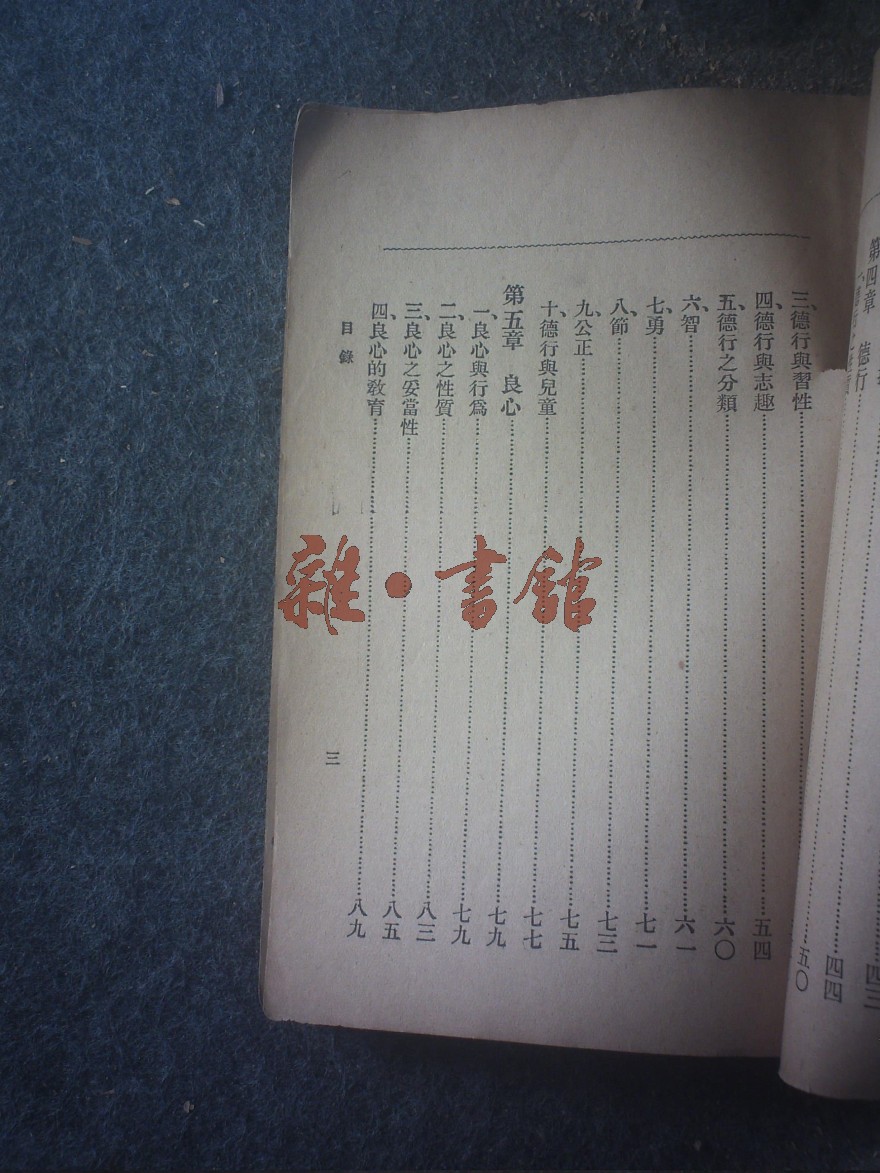 第四章　德行……四三
四四
五〇
三、德行與習性……
四、德行與志趣……五四
五、德行之分類……六〇
六、智……六一
七、勇……七一
八、節……七三
九、公正……七五
十、德行與兒童……七七
第五章　良心……七九
一、良心與行爲……七九
二、良心之性質……八三
三、良心之妥當性……八五
四、良心的教育……八九
目錄
三
雜・書館